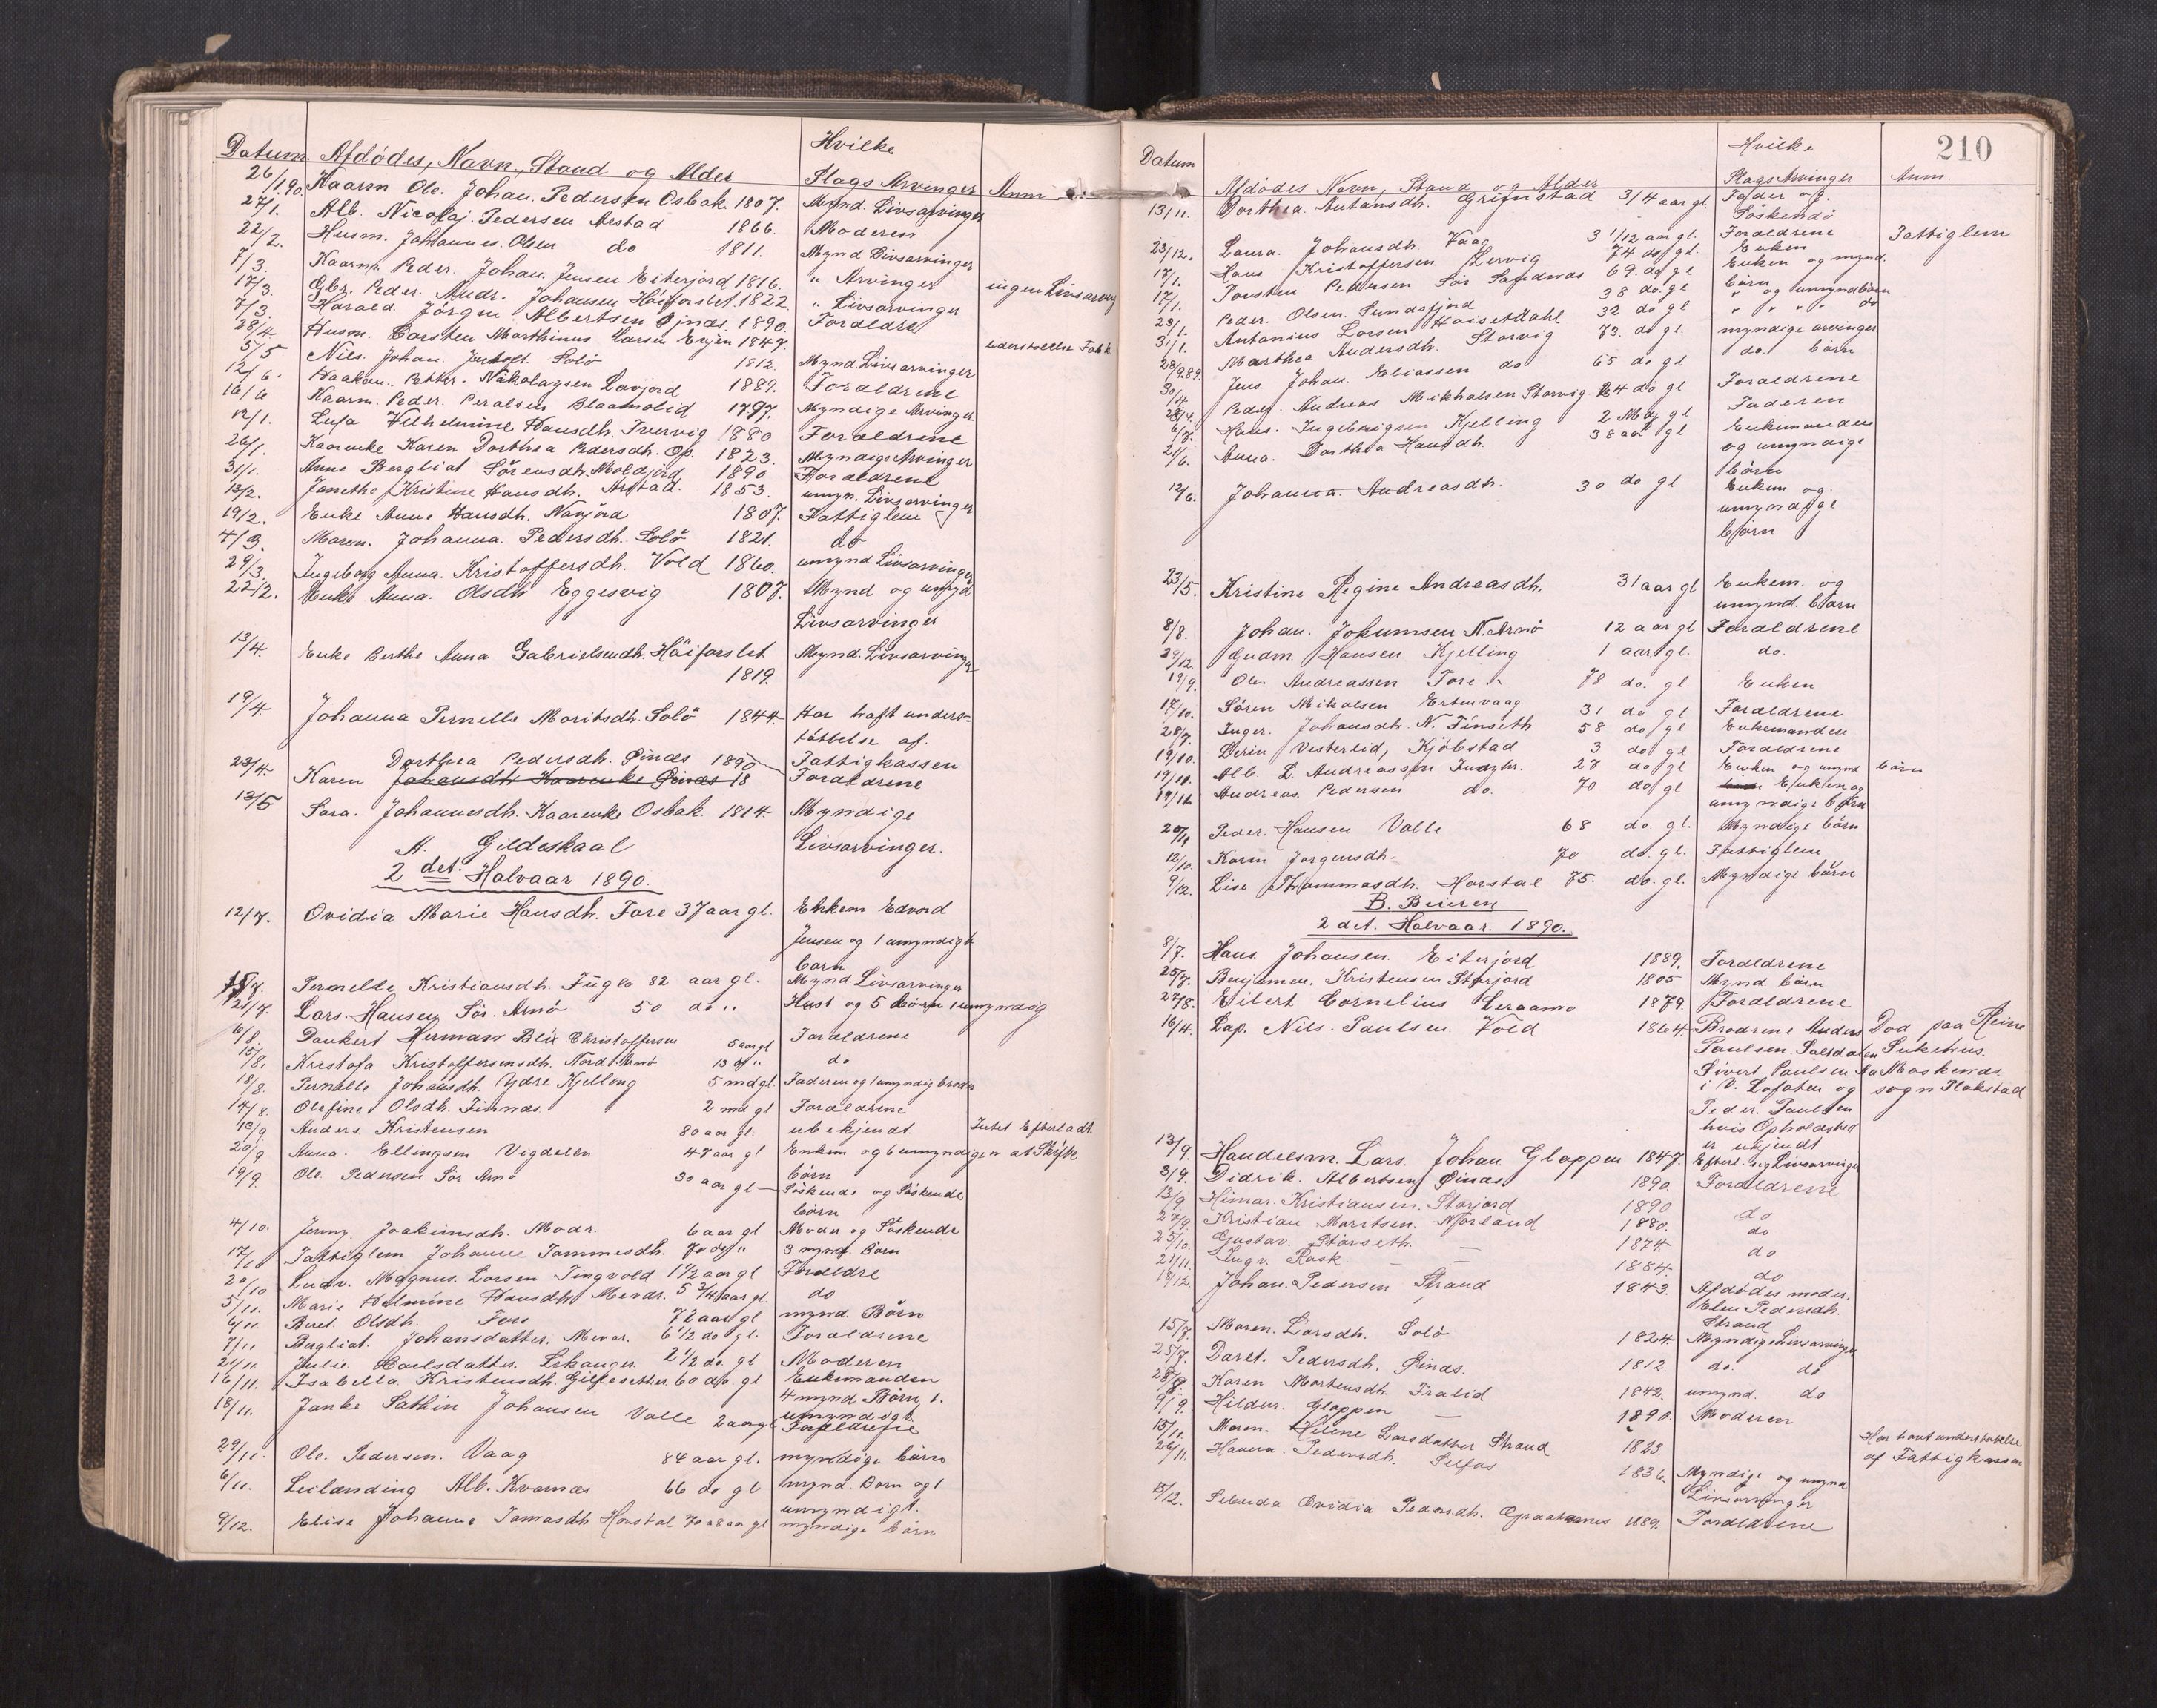 Datum Afdödes, Navn, Stand og Alder Hvilke Slags Arvinger Anm
26/1.90. Kaarm Ole. Johan. Pedersen Osbak. 1807. Mynd. Livsarvinger
27/1. Alb. Nicolaj. Pedersen Arstad 1866. Moderen
22/2. Husm. Johannes. Olsen do 1811. Mynd Livsarvinger
7/3. Kaarm. Peder. Johan. Jensen Eiterjord 1816. " Arvinger ingen Livsarvg
17/3. Gbr. Peder. Andr. Johansen Höiforslet. 1822. " Livsarvinger
7/3. Harald. Jörgen Albertsen Öjnæs. 1890. Foraldre
28/4. Husm. Carsten Marthinus Larsen Evjen 1847.
5/5 Nils. Johan. Solö 1812. Mynd Livsarvinger
12/6. Haakon. Petter. Nikolaysen Larjord 1889. Foraldrene
16/6 Kaarm. Peder. Blaamolid 1797. Myndige Arvinger
12/1. Lusa Vilhelmine Hansdh. Tvervig 1880 Foraldrene
26/1. Kaarenke Karen Dorthea Pedersdh. Os. 1823. Myndige Arvinger
31/1. Anne Bergliot Sörensdh. Moldjord 1890 Foraldrene
13/2. Janethe Kristine Hansdh. Arstad. 1853. umyn. Livsarvinger
19/2. Enke Anne Hansdh. Navjord 1807. Fattiglem
4/3. Maren. Johanna. Pedersdh. Solö 1821. do
29/3. Ingeborg Anna. Kristoffersdh. Vold 1860. umynd Livsarvinger
22/2. Enke Anna. Olsdh Eggesvig 1807. Mynd og umyd
Livsarvinger
13/4. Enke Berthe Anna Gabrielsendh. Höiforslet Mynd. Livsarvinger
1819.
19/4. Johanna Pernelle Moritsdh. Solö 1844. Har haft unders-
töttelse af.
Dorthea Pedersdh. Öinæs 1890 Fattigkassen
23/4. Karen Johansdh Kaarenke Öinæs 18 Foraldrene
13/5 Sara. Johannesdh. Kaarenke Osbak. 1814. Myndige
Livsarvinger.
A. Gildeskaal
2 det. Halvaar 1890.
12/7. Ovidia Marie Hansdh. Fore 37 aar gl. Enkem Edvard
Jensen og 1 umyndigt
barn
15/7. Pernelle Kristiansdh. Fuglö 82 aar gl. Mynd. Livsarvinger
21/7. Lars. Hansen Sör. Arnö 50 do " Hust og 5 börn 1 umyndig
6/8. Dankert Herman Blix Christoffersen 5 aar gl Foraldrene
15/8. Kristofa Kristoffersensdh. Nord Arnö 13 do " do
18/8. Pernelle Johansdh. Ydre Kjelling 5 md gl. Faderen og 1 umyndig broder
14/8. Olefine Olsdh. Finnæs. 2 md gl Foraldrene
13/9 Anders. Kristensen 80 aar gl. ubekjendt Intet Efterladt
20/9 Anna. Ellingsen Vigdelen 47 aar gl Enkem og 6 umyndige at Skifte
börn
19/9. Ole. Pedersen Sör Arnö 30 aar gl Söskende og Söskende
börn
4/10. Jenny. Joakimsdh. Modr. 6 aar gl Moder og Söskende
17/10 Fattiglem Johanne Tommesdh. 70 do " 3 mynd. Börn
20/10 Ludv. Magnus. Larsen Tingvold 1 1/2 aar gl Foraldre
5/11. Marie Helmine Hansdh. Mevdr. 5 3/4 aar gl. do
6/11. Beret. Olsdh. Fore 72 aar gl mynd. Börn
7/11 Bergliot. Johansdatter. Mevar. 6 1/2 do gl. Foraldrene
21/11. Julie Carlsdatter. Lekanger 2 1/2 do. gl Moderen
16/11. Isabella. Kristensdh. Gilsesetter 60 do. gl Enkemanden
4 mynd Börn 1.
umyndigt
18/11. Janke Cathin Johansen Valle 2 aar gl Foraldrene
29/11. Ole. Pedersen. Vaag 84 aar gl. myndige börn
6/11. Leilænding Alb. Kvarnæs 66 do gl mynd. Born og 1
umyndigt.
9/12. Elise Johanne Tomasdh Horstal 70 a 8 aar gl myndige börn
210
Datum Afdödes Navn, Stand og Alder Hvilke Slags Arvinger Anm.
13/11. Dorthea. Antonsdh. Grimstad 3/4 aar gl. Fader og.
Söskende
23/12. Laura. Johansdh. Vaag 3 1/12 aar gl. Foraldrene Fattiglem
17/1. Hans Kristoffersen Lervig 74 do gl. Enken
17/1. Torsten Pedersen Sör Sandnæs 69. do gl Enken og mynd.
börn
23/1. Peder. Olsen. Sundsfjord 38 do. gl " og umynd börn
31/1. Antonius Larsen Höisetdahl 32 do gl " " " do
28/9.89. Marthea Andersdh. Storvig 73. do gl. myndige arvinger
30/4 Jens. Johan. Eliassen do 65 do gl do. börn
28/4 Peder. Andreas Mikkalsen Storvig 24 do gl Foraldrene
6/7. Hans. Ingebrigsen Kjelling 2 Md gl Faderen
21/6. Anna. Dorthea Hansdh. 38 aar gl Enkemanden
og umyndige
börn
12/6. Johanna. Andreasdh. 30 do gl Enkem og.
umyndige
börn
23/5. Kristine Regine Andreasdh. 31 aar gl Enkem. og
umynd. börn
8/8. Johan. Jokumsen N. Arnö 12 aar gl Foraldrene
29/12. Gudm. Hansen Kjelling 1 aar gl. do.
19/9. Ole. Andreassen Fore 78 do. gl. Enken
17/10. Sören Mikalsen Ertenvaag 31 do gl Foraldrene
28/7. Inger. Johansdh. N. Finseth 58 do gl Enkemanden
19/10. Derin Vesterlid, Kjöbstad 3 do gl Foraldrene
19/11. Alb. L. Andreassen Indyr. 27 do gl Enken og umynd börn
19/12. Andreas. Pedersen do. 70 do gl Enken og
umyndige börn
20/9 Peder. Hansen Valle 68 do. gl. Myndige börn
12/10. Karen Jorgensdh. 70 do. gl. Fattiglem
9/12. Lise Thommasdh. Horstal 75. do. gl. Myndige börn
B. Beieren
2 det. Halvaar. 1890.
8/7. Hans. Johansen. Eiterjord 1889. Foraldrene
25/7. Benjamin. Kristensen Storjord 1805 Mynd börn
27/8. Eilert Cornelius Leraamo 1879. Foraldrene
16/4. Lap. Nils. Paulsen. Vold 1864. Brödrene Anders Död paa Reine
Paulsen. Saltdalen Sukehus.
Sivert Paulsen Moskenæs
i V. Lofoten og sogn Flakstad
Peder. Paulsen
hvis Opholdsted
er ukjendt
13/9. Handelsm. Lars. Johan. Gloppen 1847. Efterl. sig Livsarvinger
3/9. Didrik. Albertsen Öinæs 1890. Foraldrene
13/9. Himar. Kristiansen. Storjord 1890 do
27/9. Kristian Maritsen. Nordland 1880. do
25/10. Gustav. Storseth. — 1874. do
21/11. Ingv. Rask. — — 1884. do
18/12. Johan. Pedersen Strand 1843. Afdödes moder.
Elen Pedersdh.
Strand
15/7. Maren. Larsdh. Solö 1824. Myndige Livsarvinger
25/7. Daret. Pedersdh. Öinæs. 1812. do. do
28/8. Karen Mortensdh. Fralid 1842. umynd. do
9/9. Hildur. Gloppen — 1890. Moderen
15/11. Maren. Helene Larsdatter Strand 1823. Har havt understötelse
af Fattigkassen
26/11. Hanna. Pedersdh. Selfos 1836. Myndige og umynd
Livsarvinger
13/12. Selenda Ovidia Pedersdh. 1889. Foraldrene